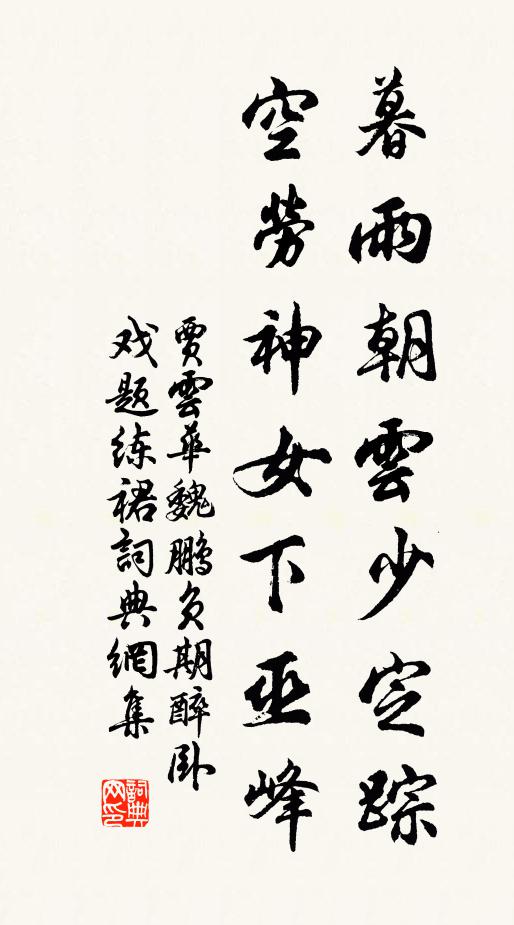 暮雨朝雲少定踪
空勞神女下巫峰
賈雲華魏鵬負期醉臥
戏题练裙詞典網集
詞典网印